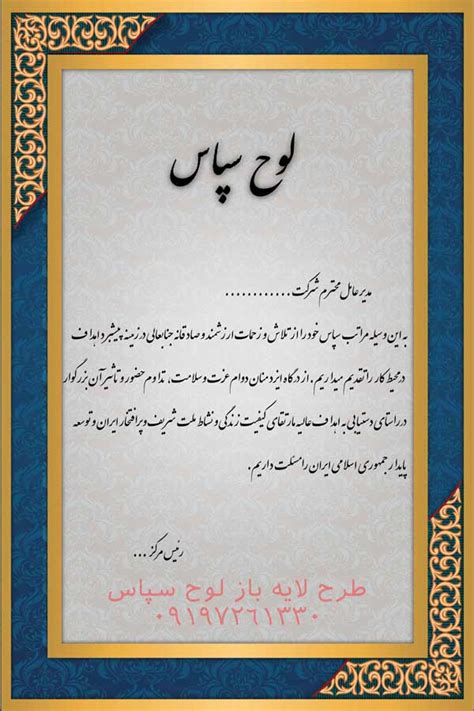 لوح سپاس
مدیر عامل محترم شرکت ............
به این وسیله مراتب سپاس خود را از تلاش و زحمات ارزشمند و صادقانه جنابعالی در زمینه پیشبرد اهداف
در محیط کار را تقدیم میداریم. از درگاه ایزد منان دوام عزت و سلامت، تداوم حضور و تاثیر آن بزرگوار
در راستای دستیابی به اهداف عالیه مارتقای کیفیت زندگی و نشاط ملت شریف و پر افتخار ایران و توسعه
پایدار جمهوری اسلامی ایران را مسئلت داریم.
رئیس مرکز ...
طرح لایه باز لوح سپاس
۰۹۱۹۷۲۶۱۳۳۰